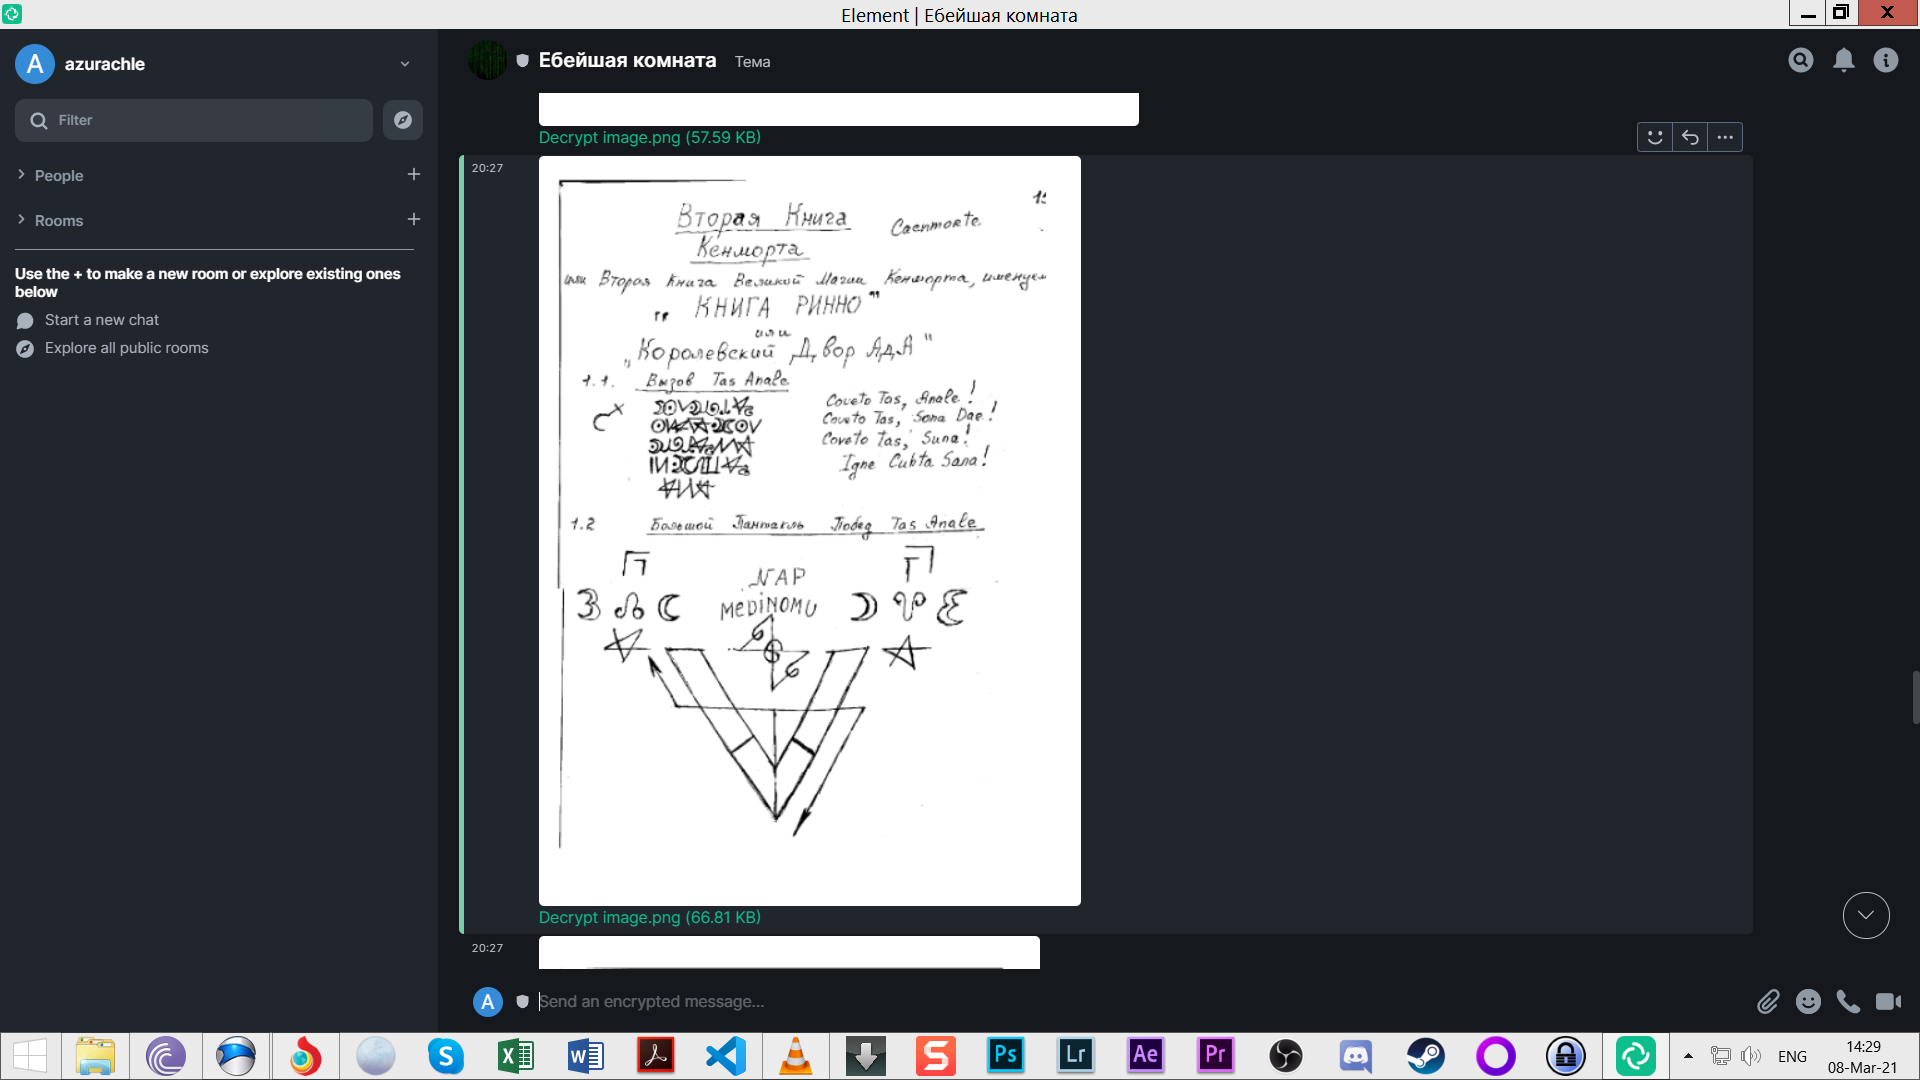 Element | Ебейшая комната
A azurachle
Filter
People
Rooms
Use the + to make a new room or explore existing ones
below
Start a new chat
Explore all public rooms
Ебейшая комната Тема
Decrypt image.png (57.59 KB)
20:27
Вторая Книга
Caenmorte
Кенморта
или Вторая Книга Великой Магии Кенморта, именуем
"КНИГА РИННО"
или
„Королевский Двор АдА"
1.1. Вызов Tas Anale
Coveto Tas, Anale!
Coveto Tas, Sona Dae!
Coveto Tas, Suna!
Igne Cubta Sana!
1.2 Большой Пантакль Побед Tas Anale
NAP
MEDINOMU
Decrypt image.png (66.81 KB)
20:27
A Send an encrypted message...
ENG
14:29
08-Mar-21